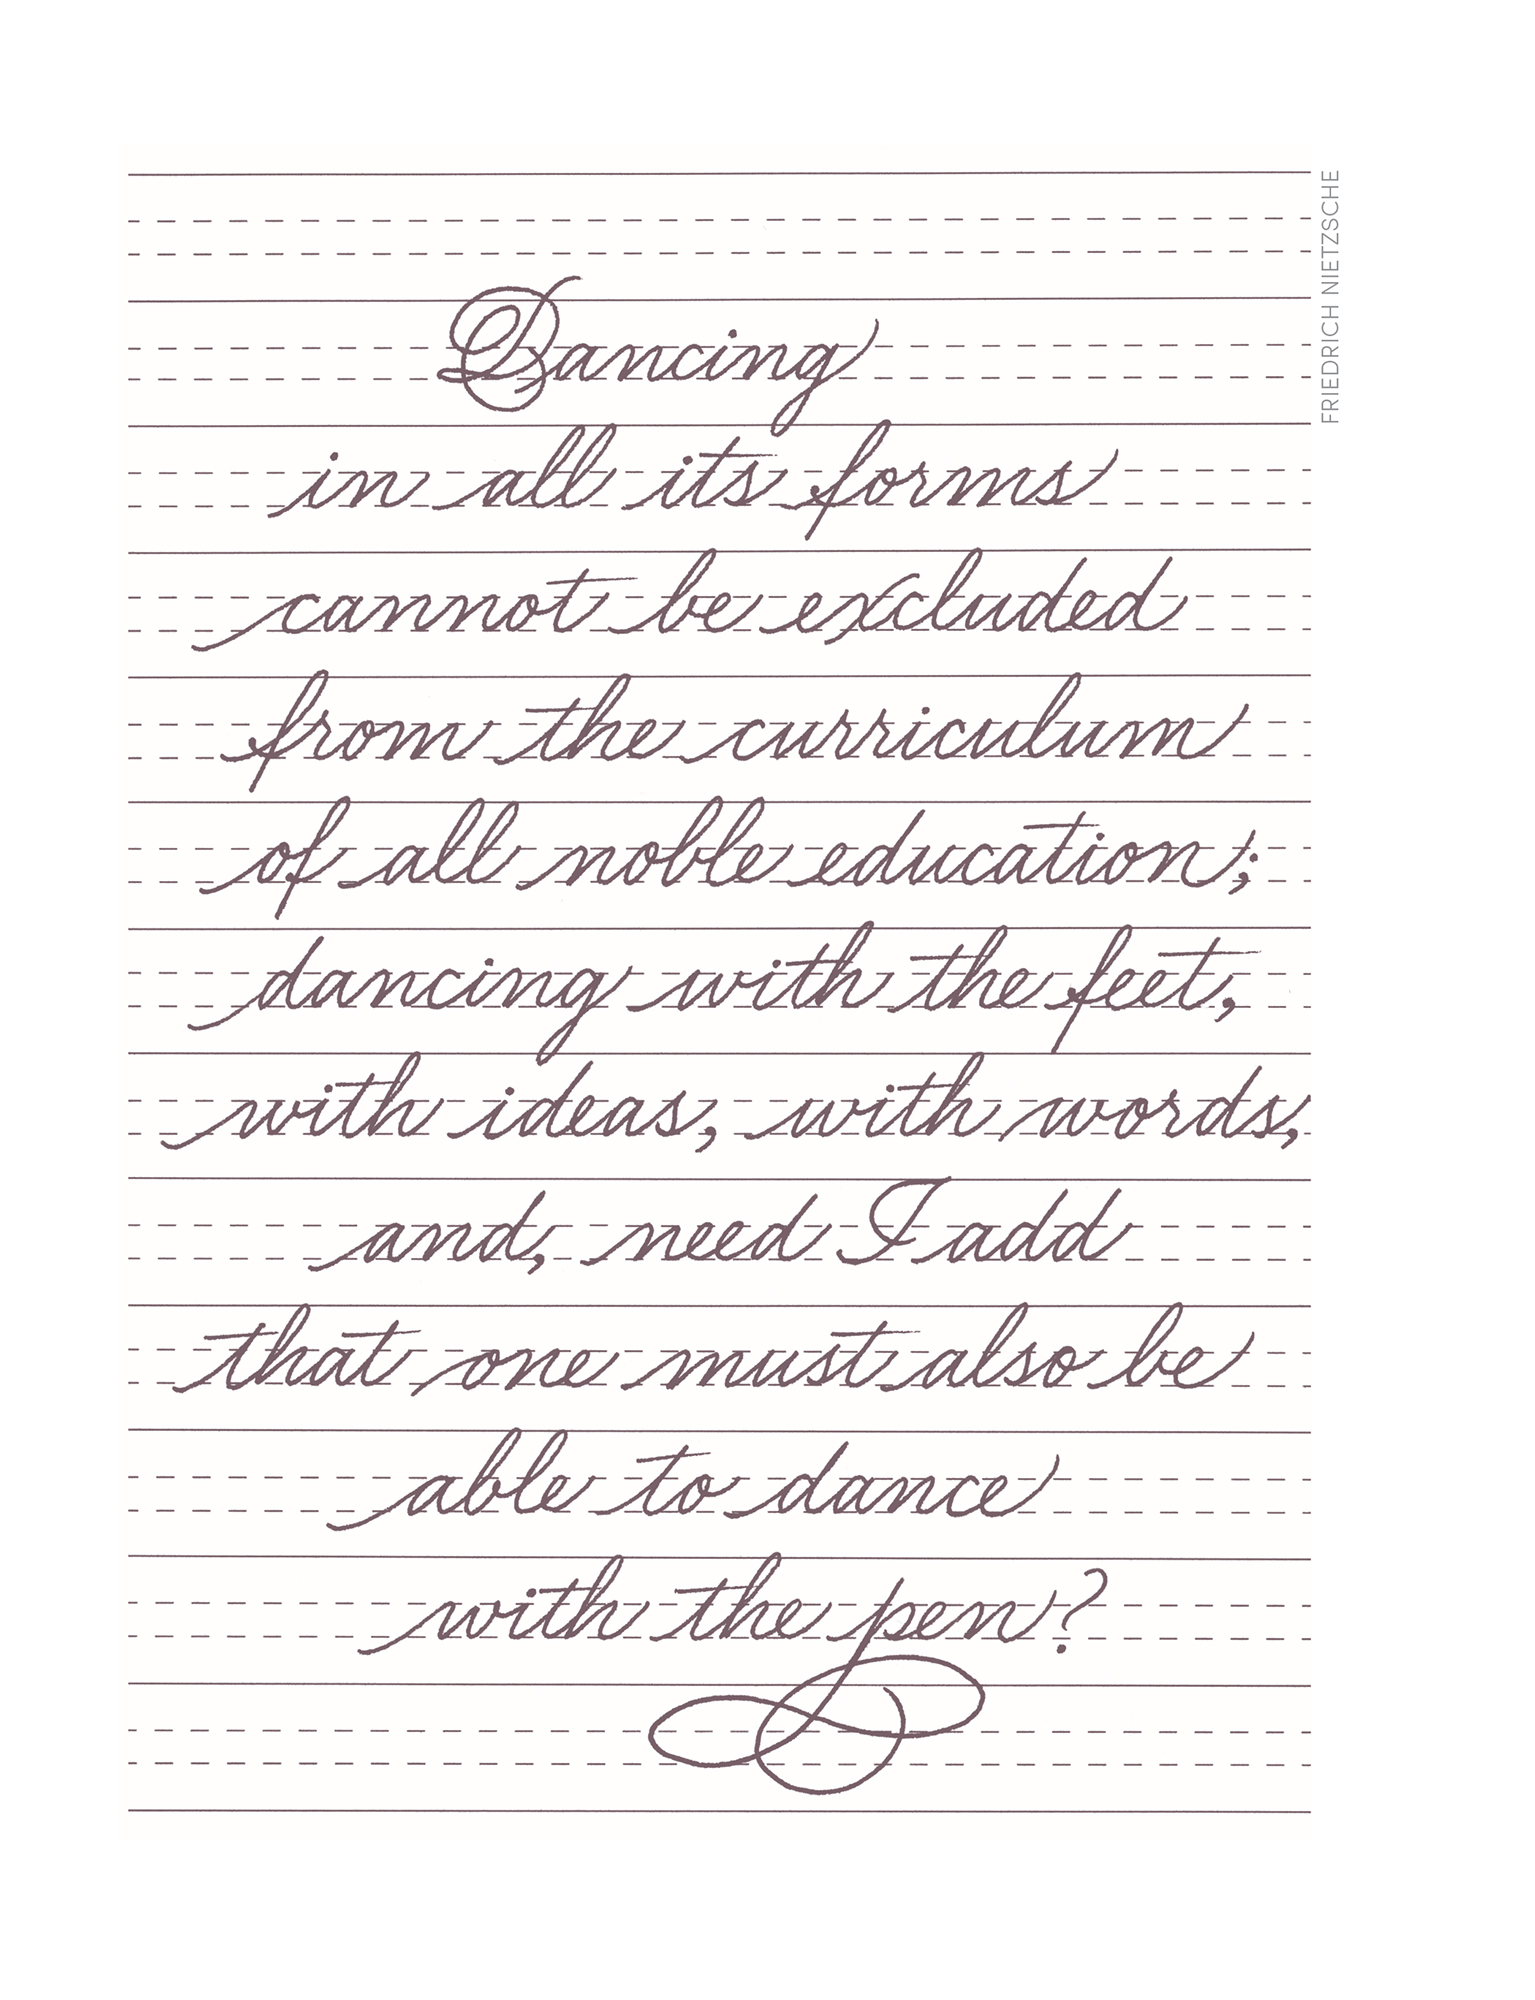 Dancing
in all its forms
cannot be excluded
from the curriculum
of all noble education;
dancing with the feet,
with ideas, with words,
and, need I add
that one must also be
able to dance
with the pen?
FRIEDRICH NIETZSCHE